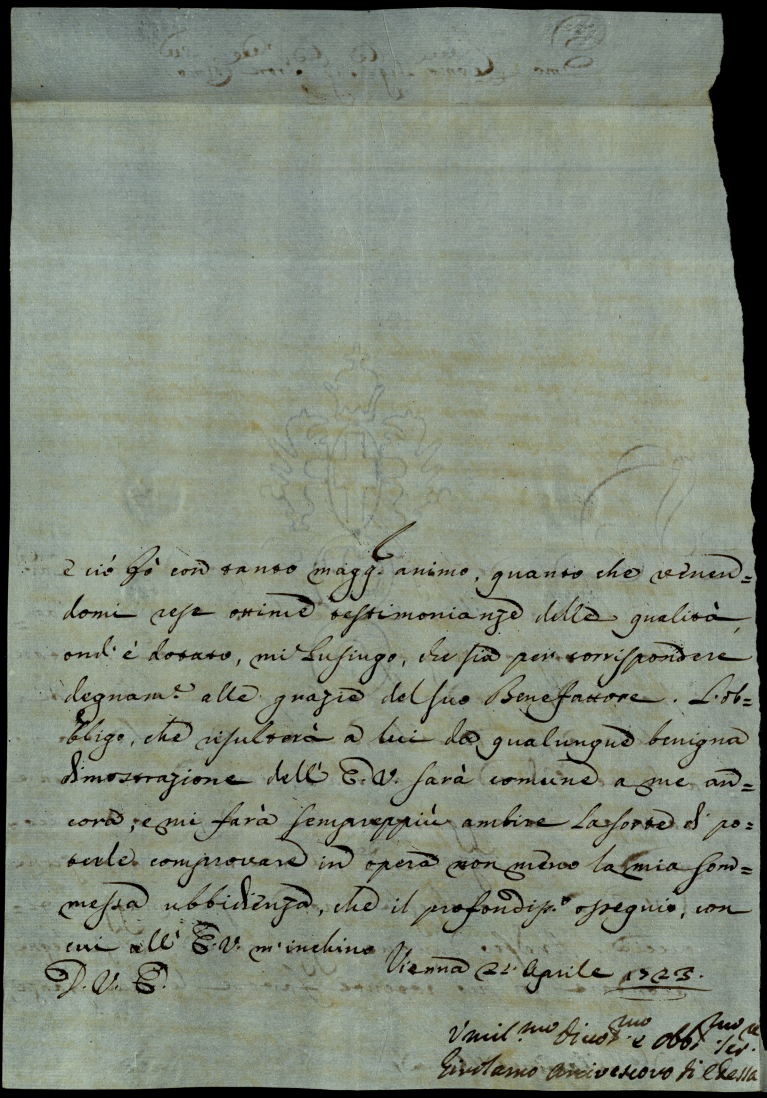 e ciò fò con tanto magg.r animo, quanto che venen=
domi rese ottime testimonianze delle qualità,
ond' è dotato, mi lusingo, che sia per corrispondere
degnam.e alle grazie del suo Benefattore. L'ob=
bligo, che risulterà a lui da qualunque benigna
dimostrazione dell' E.V. sarà comune a me an=
cora, e mi farà sempreppiù ambire la sorte di po=
terle comprovare in opera non meno la mia som=
messa ubbidienza, che il profondiss.o ossequio, con
cui all' E.V. m'inchino
Vienna Aprile 1723.
D. V. E.
Umil.mo Divot.mo e Obb.mo Ser.re
Girolamo Arcivescovo di Edessa